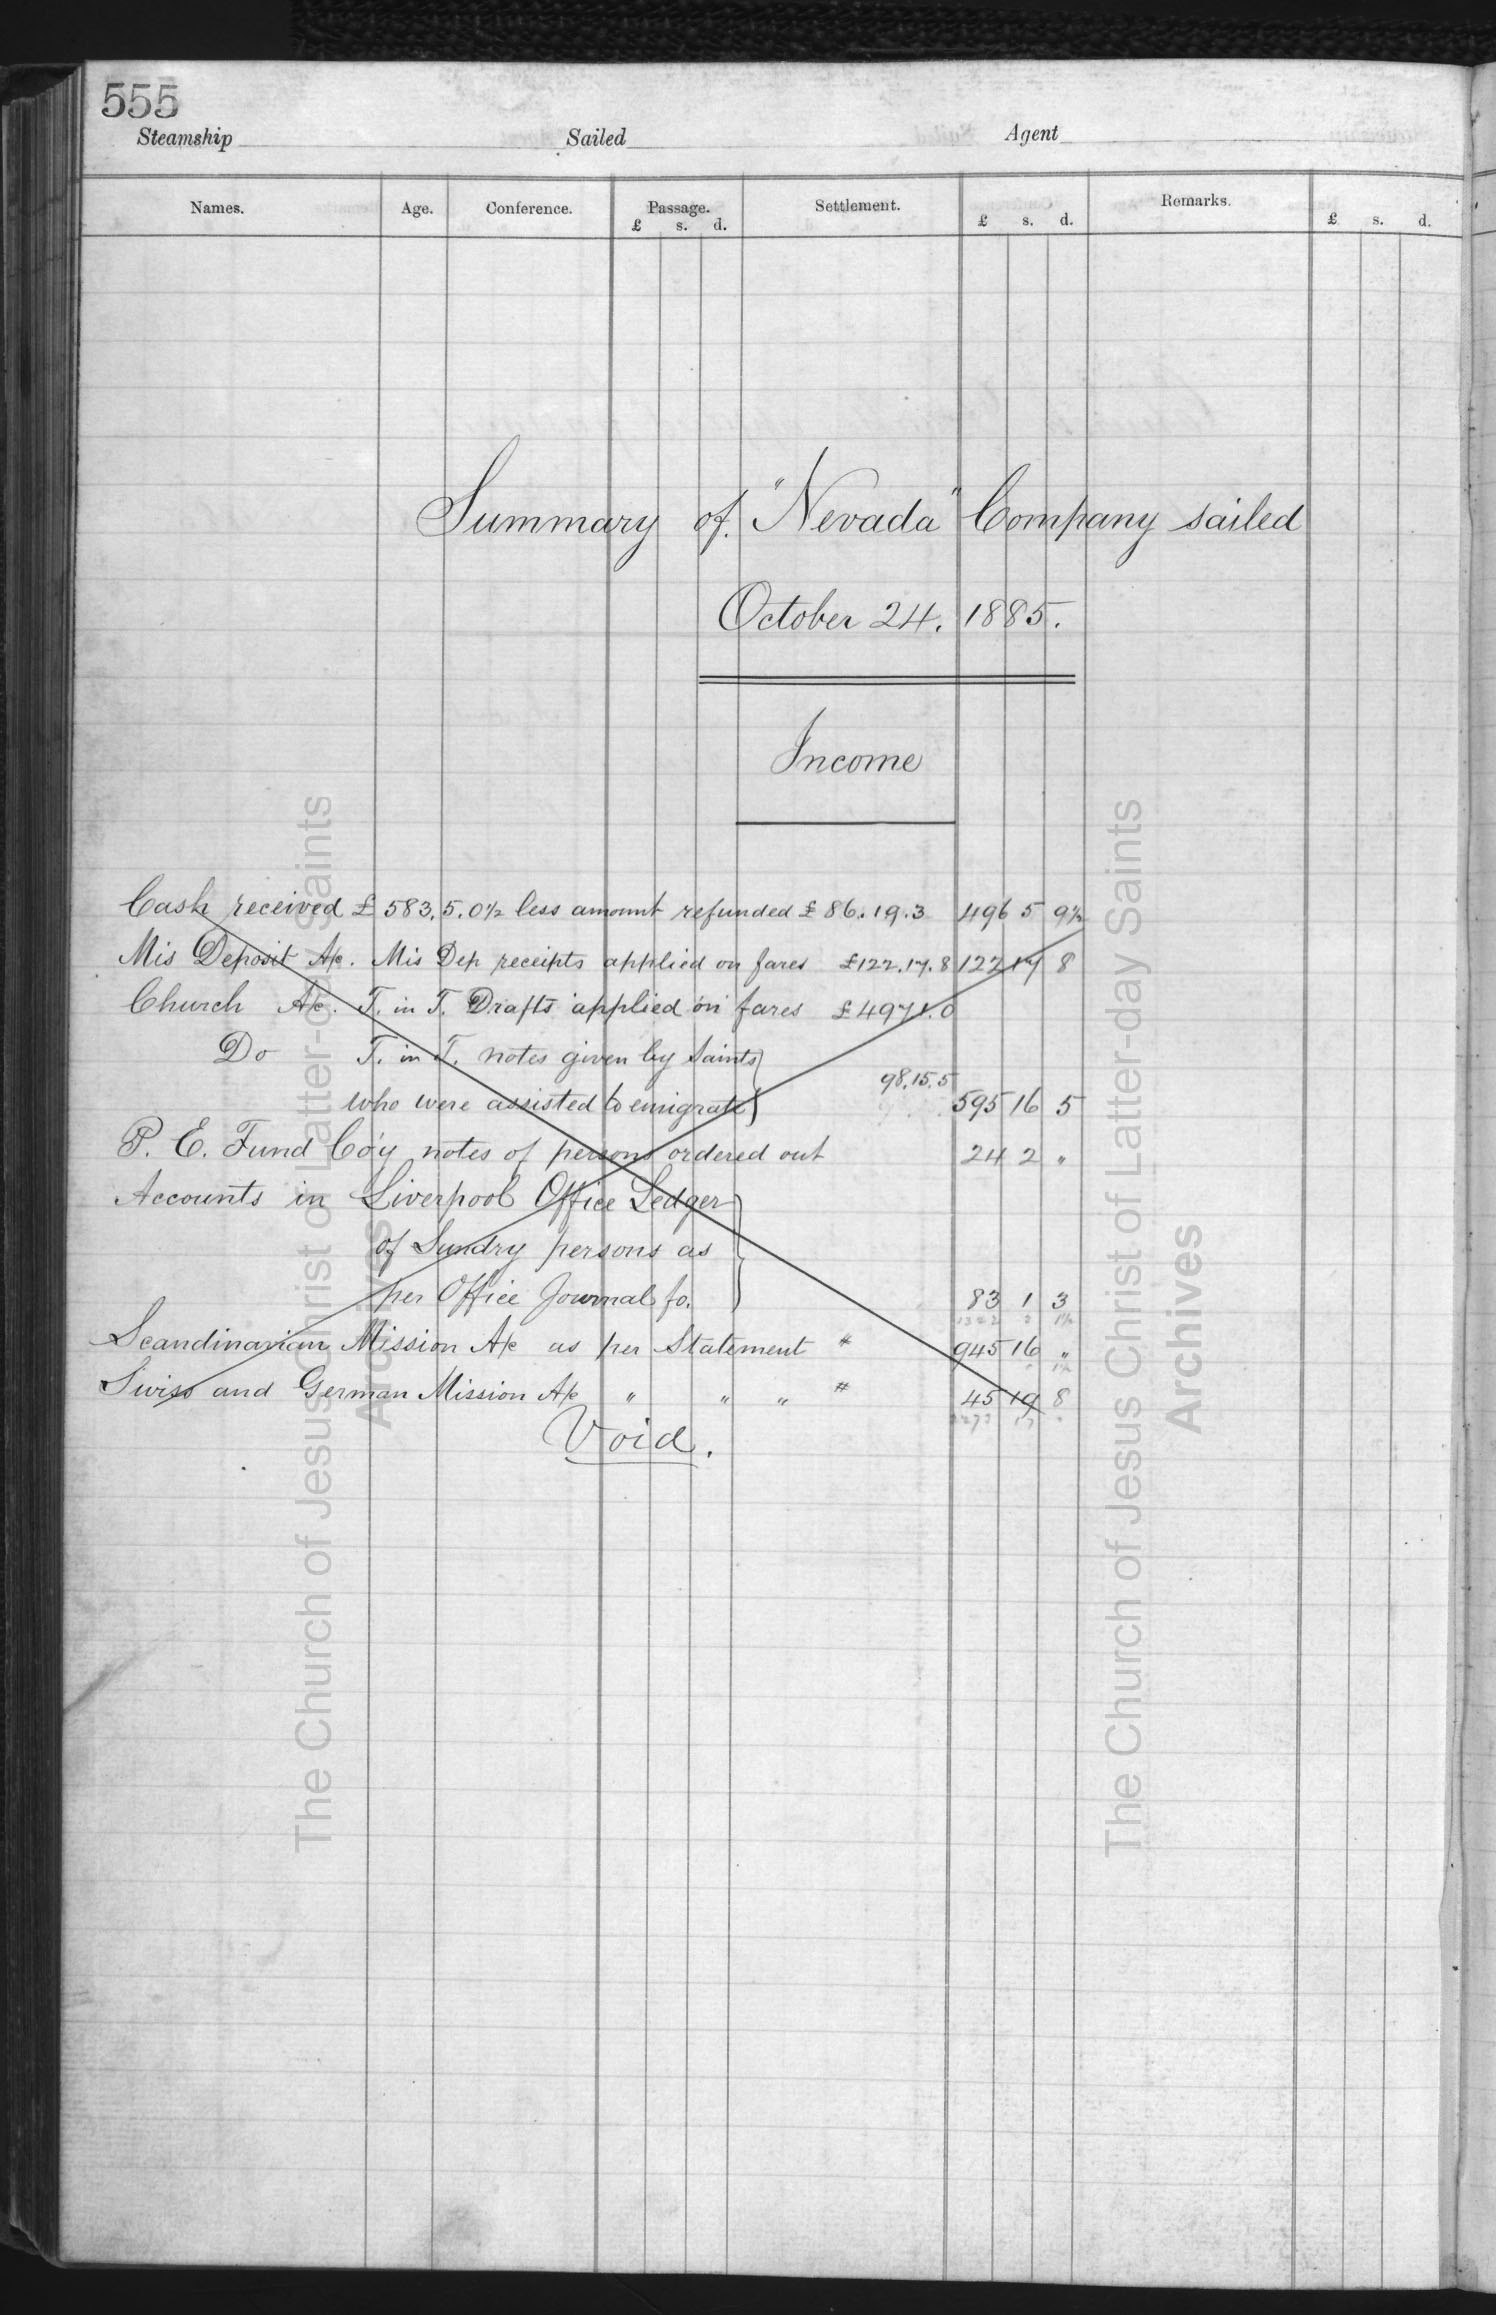 555
Steamship Sailed Agent
Names. Age. Conference. Passage. Settlement. Remarks.
£ s. d. £ s. d. £ s. d.
Summary of "Nevada" Company sailed
October 24. 1885.
Income
Cash received £ 583.5.0½ less amount refunded £ 86.19.3 496 5 9½
Mis Deposit A/c. Mis Dep receipts applied on fares £122.17.8 122 17 8
Church A/c. T. in T. Drafts applied on fares £497.1.0
Do T. in T. notes given by Saints
98.15.5
who were assisted to emigrate 595 16 5
P. E. Fund Co'y notes of persons ordered out 24 2 "
Accounts in Liverpool Office Ledger
of Sundry persons as
per Office Journal fo. 83 1 3
Scandinavian Mission A/c as per Statement # 945 16 "
Swiss and German Mission A/c " " " # 45 19 8
Void.
The Church of Jesus Christ of Latter-day Saints
Archives
The Church of Jesus Christ of Latter-day Saints
Archives